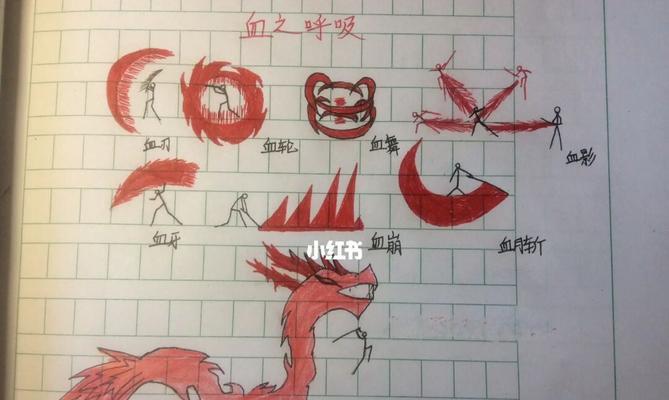 血之呼吸
血刃
血轮
血舞
血影
血牙
血崩
血月斩
小红书